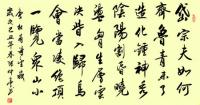 岱宗夫如何
齊魯青未了
造化鍾神秀
陰陽割昏曉
盪胸生層雲
決眥入歸鳥
會當凌絕頂
一覽眾山小
唐杜甫詩望嶽
歲次己丑年